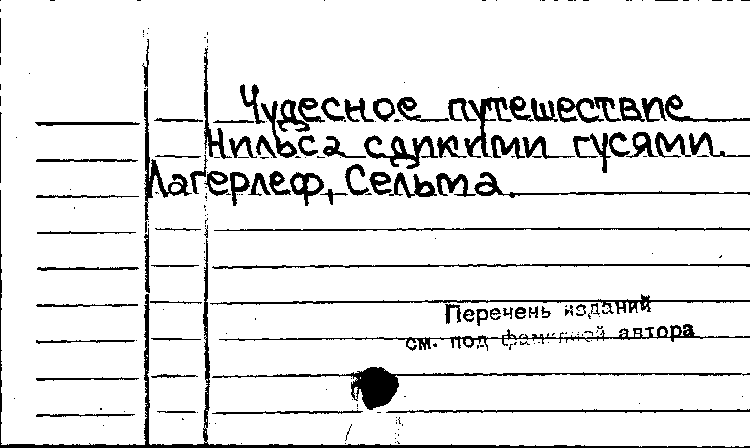 Чудесное путешествие
Нильса с дикими гусями.
Лагерлеф, Сельма.
Перечень изданий
см. под фамилией автора